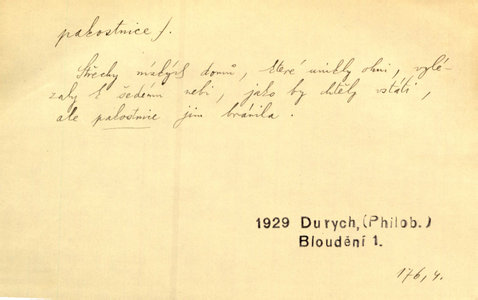 pakostnice f.
Střechy nízkých domů, které unikly ohni, vylé-
zaly k šedému nebi, jako by chtěly vstáti,
ale pakostnice jim bránila.
1929 Durych, (Philob.)
Bloudění 1.
176, 4.